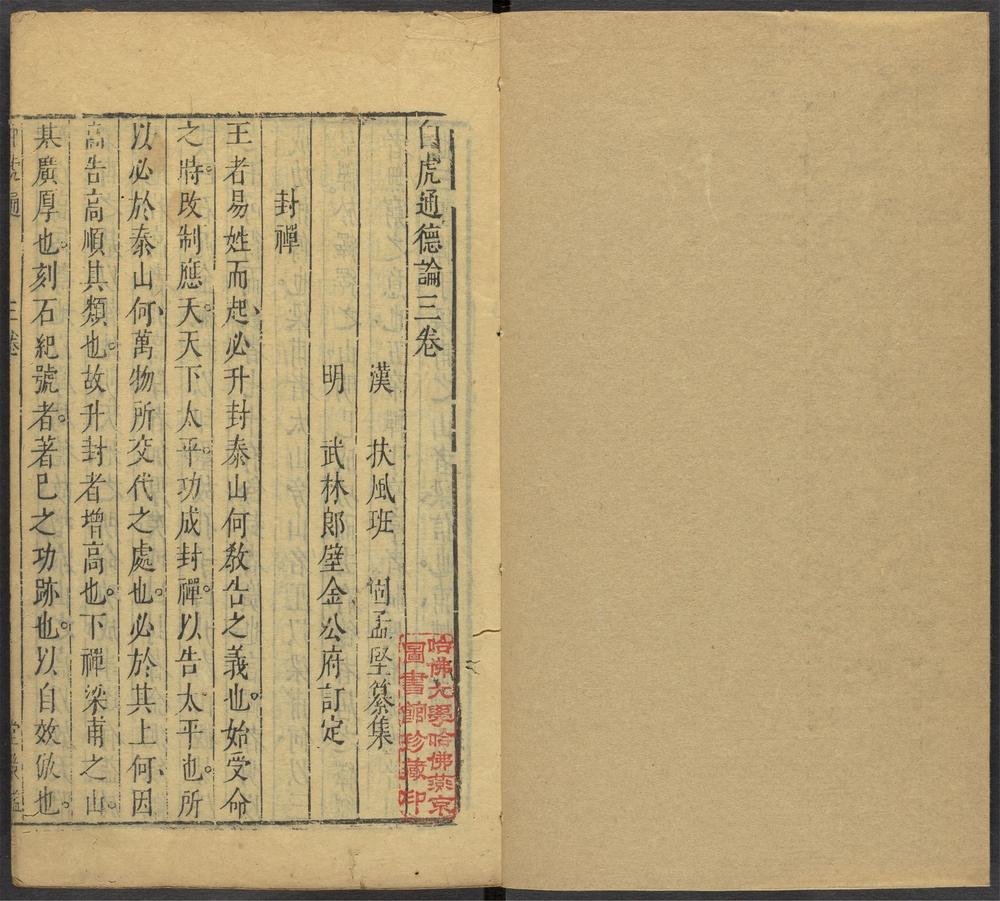 白虎通德論三卷
漢 扶風班 固孟堅纂集
明 武林郎壁金公府訂定
封禪
王者易姓而起、必升封泰山何敎告之義也。始受命
之時。改制應天。天下太平。功成封禪。以告太平也。所
以必於泰山何、萬物所交代之處也。必於其上何、因
高告高順其類也。故升封者增高也。下禪梁甫之山。
基廣厚也。刻石紀號者。著已之功跡也。以自效倣也。
三卷
哈佛大學哈佛燕京
圖書館珍藏印